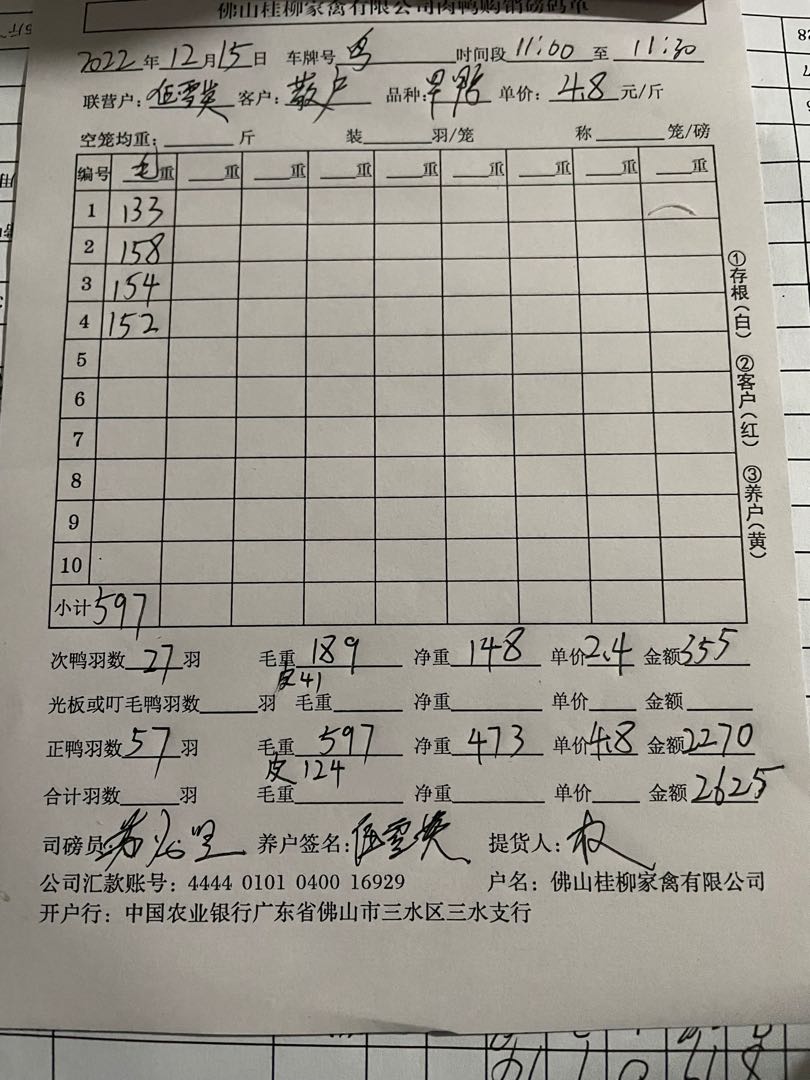 佛山桂柳家禽有限公司肉鸭购销磅码单
2022年12月15日 车牌号 时间段 11:00 至 11:30
联营户：伍雪英 客户：散户 品种： 单价：4.8 元/斤
空笼均重： 斤 装 羽/笼 称 笼/磅
编号 毛重 重 重 重 重 重 重 重 重
1 133
2 158
3 154
4 152
5
6
7
8
9
10
小计 597
①存根（白） ②客户（红） ③养户（黄）
次鸭羽数 27 羽 毛重 189 净重 148 单价 2.4 金额 355
皮41
光板或叮毛鸭羽数 羽 毛重 净重 单价 金额
正鸭羽数 57 羽 毛重 597 净重 473 单价 4.8 金额 2270
皮 124
合计羽数 羽 毛重 净重 单价 金额 2625
司磅员： 养户签名：伍雪英 提货人：
公司汇款账号：4444 0101 0400 16929 户名：佛山桂柳家禽有限公司
开户行：中国农业银行广东省佛山市三水区三水支行